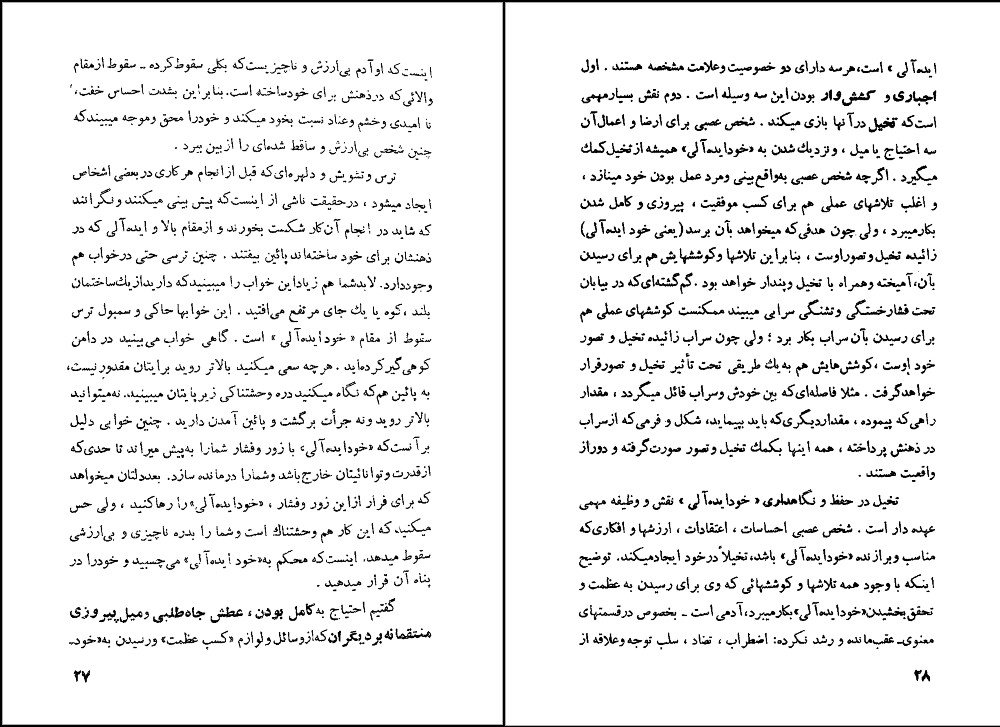 اینست‌که او آدم بی‌ارزش و ناچیزیست‌که بکلی سقوط‌کرده ــ سقوط ازمقام
والائی‌که درذهنش برای خودساخته است. بنابراین بشدت احساس خفت،
نا امیدی وخشم وعناد نسبت بخود میکند و خودرا محق وموجه میبیندکه
چنین شخص بی‌ارزش و ساقط شده‌ای را ازبین ببرد .
ترس وتشویش و دلهره‌ای‌که قبل ازانجام هرکاری دربعضی اشخاص
ایجاد میشود ، درحقیقت ناشی از اینست‌که پیش بینی میکنند ونگرانند
که شاید در انجام آن‌کار شکست بخورند و ازمقام بالا و ایده‌آلی که در
ذهنشان برای خود ساخته‌اند پائین بیفتند . چنین ترسی حتی درخواب هم
وجوددارد. لابدشما هم زیاداین خواب را میبینیدکه داریدازیك‌ساختمان
بلند ، کوه یا یك جای مرتفع می‌افتید . این خوابها حاکی و سمبول ترس
سقوط از مقام « خودایده‌آلی » است . گاهی خواب می‌بینید در دامن
کوهی‌گیرکرده‌اید . هرچه سعی میکنید بالاتر روید برایتان مقدور نیست،
به پائین هم‌که نگاه میکنید دره وحشتناکی زیرپایتان میبینید. نه‌میتوانید
بالاتر روید ونه جرأت برگشت و پائین آمدن دارید . چنین خوابی دلیل
برآنست‌که «خودایده‌آلی» با زور وفشار شمارا به‌پیش میراند تا حدی‌که
ازقدرت وتوانائیتان خارج‌باشد وشمارا درمانده سازد. بعددلتان میخواهد
که برای فرار ازاین زور وفشار ، «خودایده‌آلی» را رهاکنید ، ولی حس
میکنیدکه این کار هم وحشتناك است وشما را بدره ناچیزی و بی‌ارزشی
سقوط میدهد. اینست‌که محکم به«خود ایده‌آلی» می‌چسبید و خودرا در
پناه آن قرار میدهید .
گفتیم احتیاج به‌کامل بودن ، عطش جاه‌طلبی ومیل پیروزی
منتقمانه بر دیگران که‌ازوسائل ولوازم «کسب عظمت» ورسیدن به«خودــ
۲۷
ایده‌آلی » است، هرسه دارای دو خصوصیت وعلامت مشخصه هستند . اول
اجباری و کشش‌وار بودن این سه وسیله است . دوم نقش بسیارمهمی
است‌که تخیل درآنها بازی میکند . شخص عصبی برای ارضا و اعمال‌آن
سه احتیاج یا میل ، ونزدیك شدن به «خودایده‌آلی» همیشه ازتخیل‌کمك
میگیرد . اگرچه شخص عصبی به‌واقع‌بینی ومرد عمل بودن خود مینازد ،
و اغلب تلاشهای عملی هم برای کسب موفقیت ، پیروزی و کامل شدن
بکارمیبرد ، ولی چون هدفی‌که میخواهد بآن برسد (یعنی خود ایده‌آلی)
زائیده تخیل وتصوراوست ، بنابراین تلاشها وکوششهایش هم برای رسیدن
بآن، آمیخته وهمراه با تخیل وپندار خواهد بود .گم‌گشته‌ای‌که در بیابان
تحت فشارخستگی وتشنگی سرابی میبیند ممکنست کوششهای عملی هم
برای رسیدن بآن سراب بکار برد ؛ ولی چون سراب زائیده تخیل و تصور
خود اوست ، کوشش‌هایش هم به‌یك طریقی تحت تأثیر تخیل و تصورقرار
خواهدگرفت . مثلا فاصله‌ای‌که بین خودش وسراب قائل میگردد ، مقدار
راهی‌که پیموده ، مقداردیگری‌که باید بپیماید، شکل و فرمی‌که ازسراب
در ذهنش پرداخته ، همه اینها بکمك تخیل وتصور صورت‌گرفته و دوراز
واقعیت هستند .
تخیل در حفظ و نگاهداری « خودایده‌آلی » نقش و وظیفه مهمی
عهده دار است . شخص عصبی احساسات ، اعتقادات ، ارزشها و افکاری‌که
مناسب وبرازنده «خودایده‌آلی» باشد، تخیلاً درخود ایجادمیکند. توضیح
اینکه با وجود همه تلاشها و کوششهائی که وی برای رسیدن به عظمت و
تحقق‌بخشیدن«خودایده‌آلی»بکارمیبرد، آدمی است ــ بخصوص درقسمتهای
معنوی‌ــ عقب‌مانده و رشد نکرده: اضطراب ، تضاد ، سلب توجه وعلاقه از
۲۸